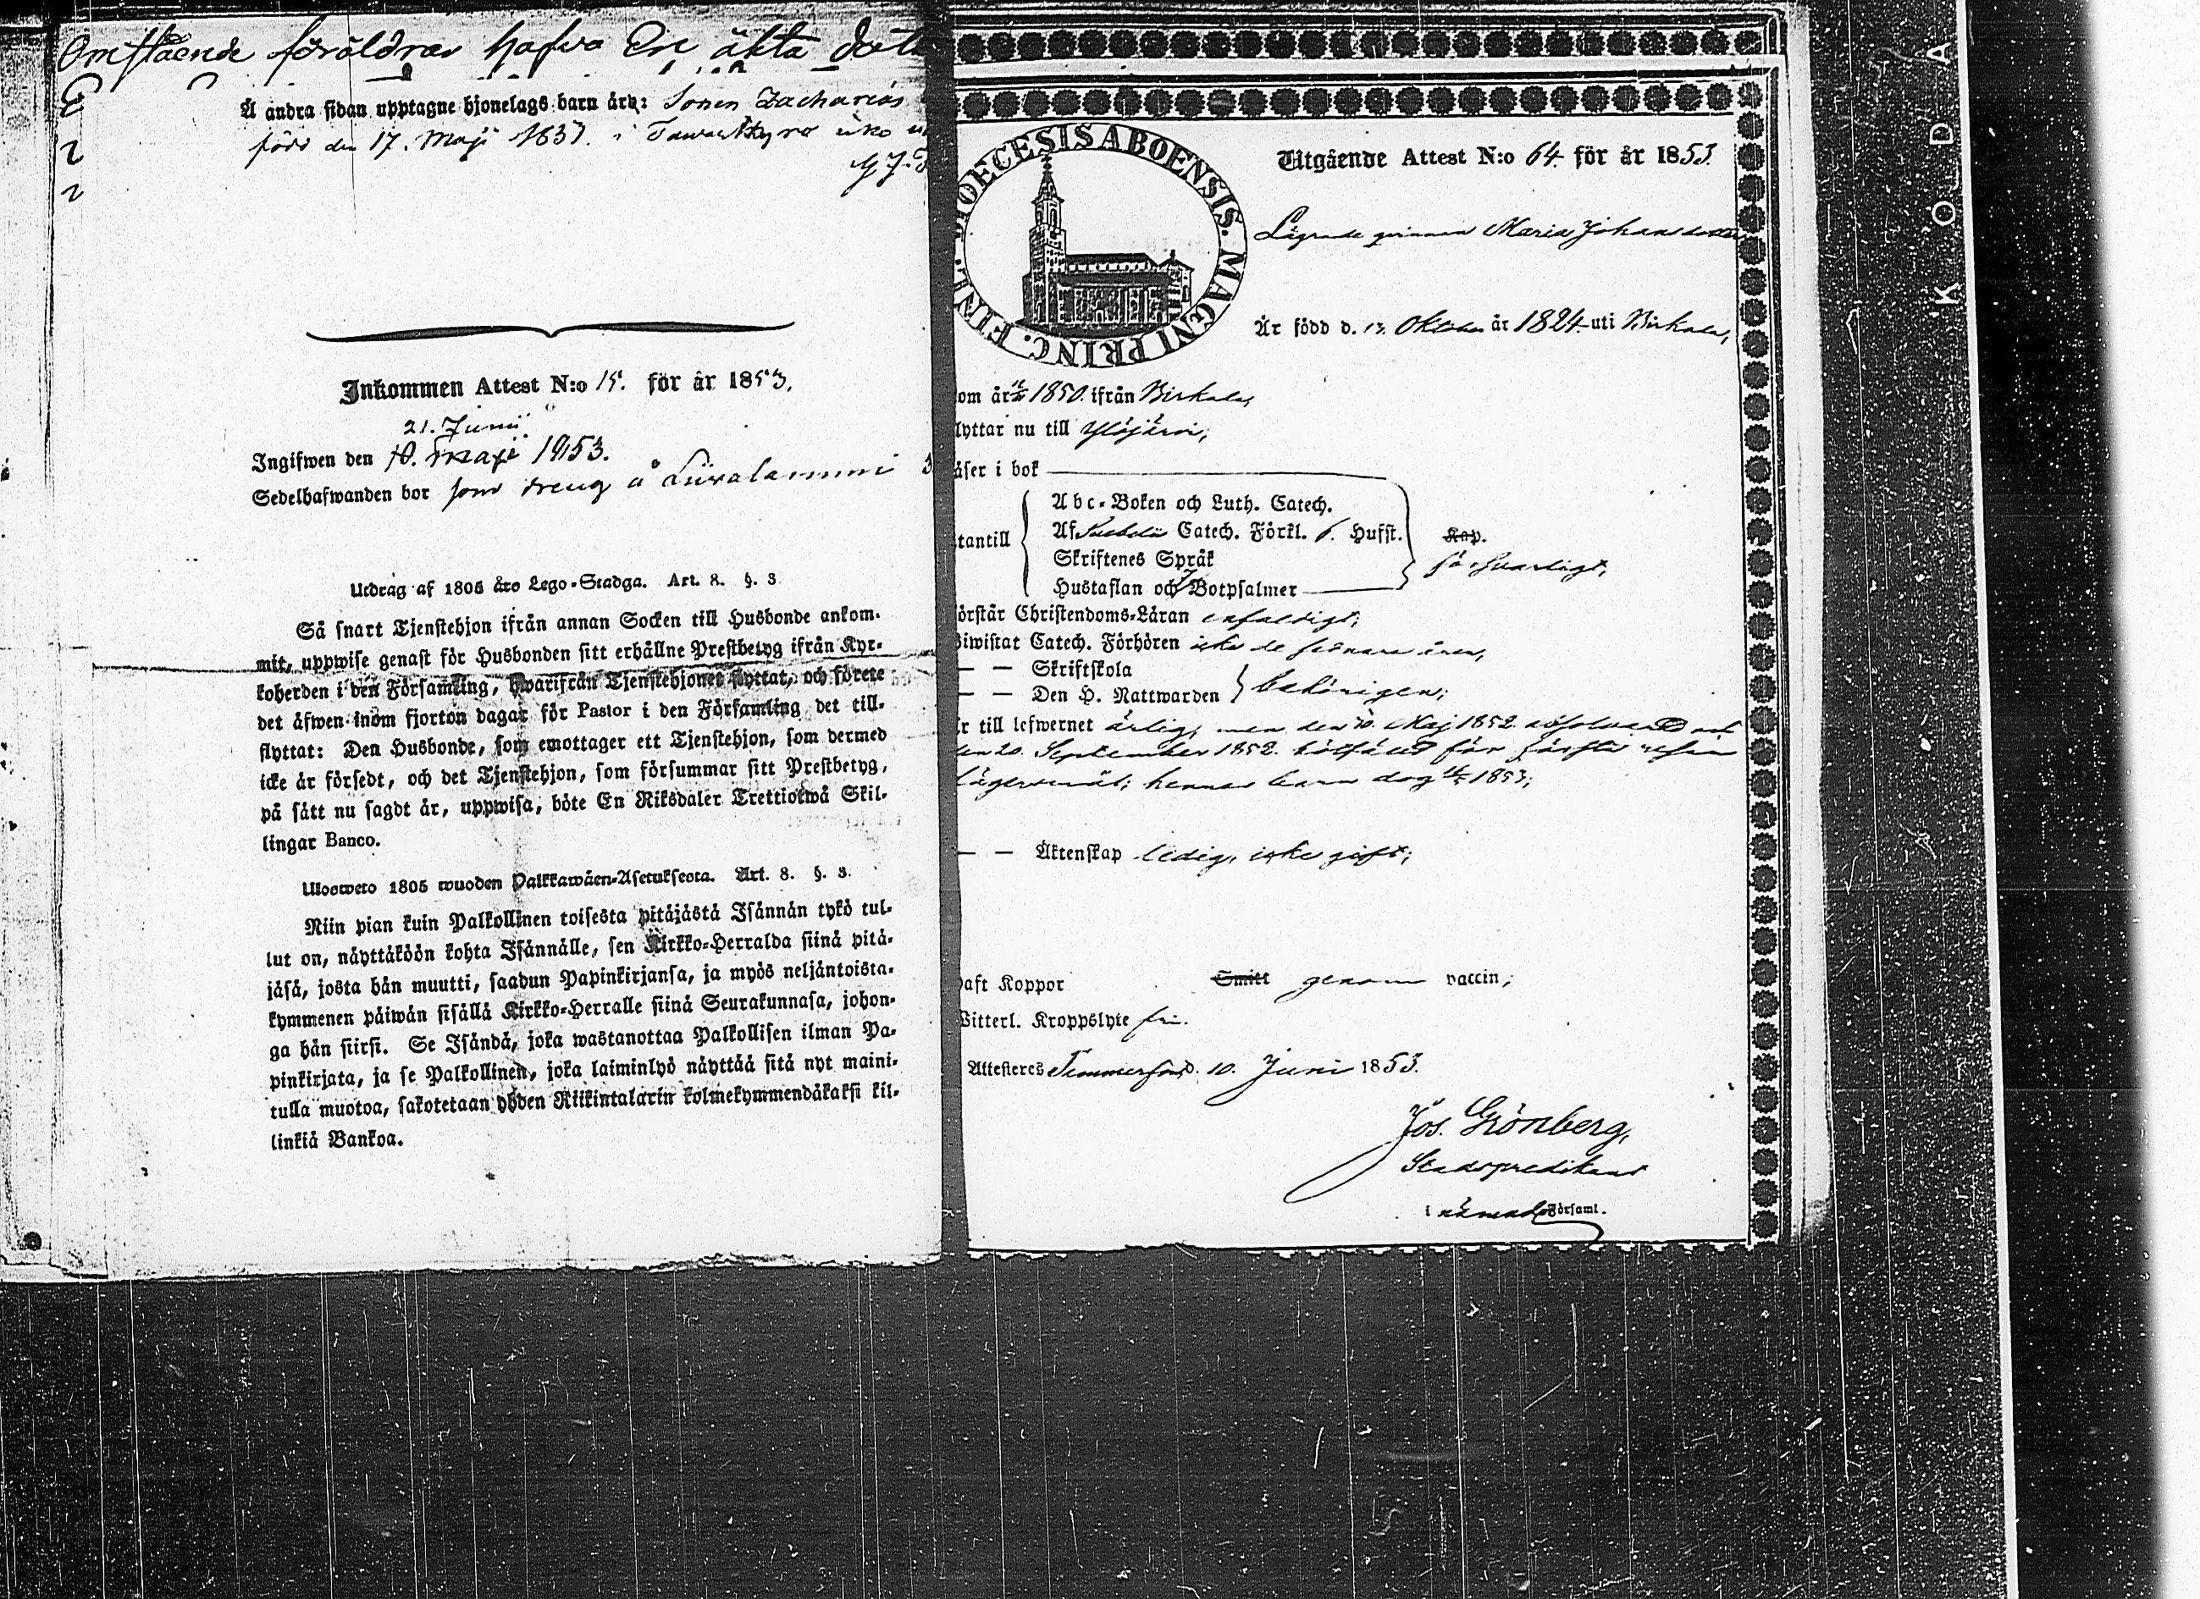 Omstående föräldrar hafva En äkta
Å andra sidan upptagne hjonelags barn äro: Sonen Zacharias
född den 17. Maji 1837. i Tavastkyro
Inkommen Attest N:o 15. för år 1853.
21. Junii
Ingifwen den 10. Maji 1853.
Sedelhafwanden bor som dreng å Liiwalammi
Utdrag af 1805 åro Lego-Stadga. Art. 8. §. 3
Så snart Tjenstehjon ifrån annan Socken till Husbonde ankom-
mit, uppwise genast för Husbonden sitt erhållne Prestbetyg ifrån Kyr-
koherden i den Församling, hwarifrån Tjenstehjonet flyttat, och förete
det äfwen inom fjorton dagar för Pastor i den Församling det till-
flyttat: Den Husbonde, som emottager ett Tjenstehjon, som dermed
icke är försedt, och det Tjenstehjon, som försummar sitt Prestbetyg,
på sätt nu sagdt är, uppwisa, böte En Riksdaler Trettiotwå Skil-
lingar Banco.
Ulosweto 1805 wuoden Palkkawäen-Asetuksesta. Art. 8. §. 3.
Niin pian kuin Palkollinen toisesta pitäjästä Isännän tykö tul-
lut on, näyttäköön kohta Isännälle, sen Kirkko-Herralda siinä pitä-
jäsä, josta hän muutti, saadun Papinkirjansa, ja myös neljäntoista-
kymmenen päiwän sisällä Kirkko-Herralle siinä Seurakunnasa, johon-
ga hän siirsi. Se Isändä, joka wastanottaa Palkollisen ilman Pa-
pinkirjata, ja se Palkollinen, joka laiminlyö näyttää sitä nyt maini-
tulla muotoa, sakotetaan yhden Riikintalarin kolmekymmendäkaksi kil-
linkiä Bankoa.
DIOECESIS ABOENSIS. MAGNI PRINC. FINL.
Utgående Attest N:o 64. för år 1853.
Lägrade qvinnan Maria Johansdotter
Är född d. 13. Oktober år 1824. uti Birkala,
om år 1850. ifrån Birkala,
lyttar nu till Ylöjärvi,
äser i bok
tantill
Abc-Boken och Luth. Catech.
Af Svebelii Catech. Förkl. 6. Hufst.
Skriftenes Språk
Hustaflan och 7 Botpsalmer
Kap.
försvarligt,
örstår Christendoms-Läran enfaldigt;
iwistat Catech. Förhören icke de sednare åren,
— — Skriftskola
— — Den H. Nattwarden
behörigen;
r till lefwernet ärlig, men den 10. Maj 1852 absolverad och
den 20. September 1852. bötfäld för första resan
lägersmål; hennes barn dog 1853;
— — Äktenskap ledig, icke gift;
aft Koppor Smitt genom vaccin;
Witterl. Kroppslyte fri.
Attesteres Tammerfors d. 10. Juni 1853.
Jos. Grönberg,
Stadspredikant
i nämnde Församl.
KODA